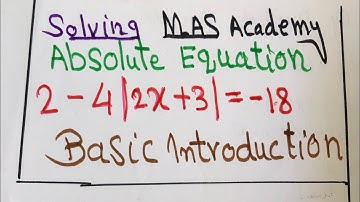 Solving MAS Academy
Absolute Equation
2-4|2x+3|=-18
Basic Introduction